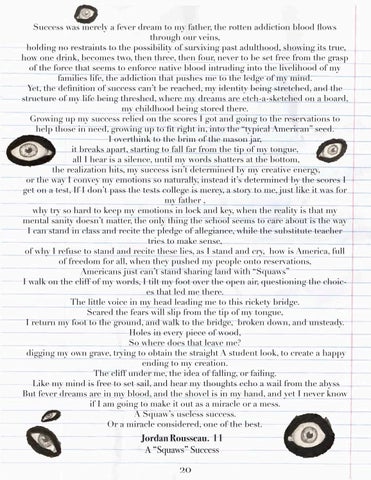 Success was merely a fever dream to my father, the rotten addiction blood flows
through our veins,
holding no restraints to the possibility of surviving past adulthood, showing its true,
how one drink, becomes two, then three, then four, never to be set free from the grasp
of the force that seems to enforce native blood intruding into the livelihood of my
families life, the addiction that pushes me to the ledge of my mind.
Yet, the definition of success can't be reached, my identity being stretched, and the
structure of my life being threshed, where my dreams are etch-a-sketched on a board,
my childhood being stored there.
Growing up my success relied on the scores I got and going to the reservations to
help those in need, growing up to fit right in, into the "typical American" seed.
I overthink to the brim of the mason jar,
it breaks apart, starting to fall far from the tip of my tongue,
all I hear is a silence, until my words shatters at the bottom,
the realization hits, my success isn't determined by my creative energy,
or the way I convey my emotions so naturally, instead it's determined by the scores I
get on a test, If I don't pass the tests college is mercy, a story to me, just like it was for
my father ,
why try so hard to keep my emotions in lock and key, when the reality is that my
mental sanity doesn't matter, the only thing the school seems to care about is the way
I can stand in class and recite the pledge of allegiance, while the substitute teacher
tries to make sense,
of why I refuse to stand and recite these lies, as I stand and cry, how is America, full
of freedom for all, when they pushed my people onto reservations,
Americans just can't stand sharing land with "Squaws"
I walk on the cliff of my words, I tilt my foot over the open air, questioning the choic-
es that led me there.
The little voice in my head leading me to this rickety bridge.
Scared the fears will slip from the tip of my tongue,
I return my foot to the ground, and walk to the bridge, broken down, and unsteady.
Holes in every piece of wood,
So where does that leave me?
digging my own grave, trying to obtain the straight A student look, to create a happy
ending to my creation.
The cliff under me, the idea of falling, or failing.
Like my mind is free to set sail, and hear my thoughts echo a wail from the abyss
But fever dreams are in my blood, and the shovel is in my hand, and yet I never know
if I am going to make it out as a miracle or a mess.
A Squaw's useless success.
Or a miracle considered, one of the best.
Jordan Rousseau. 11
A "Squaws" Success
20